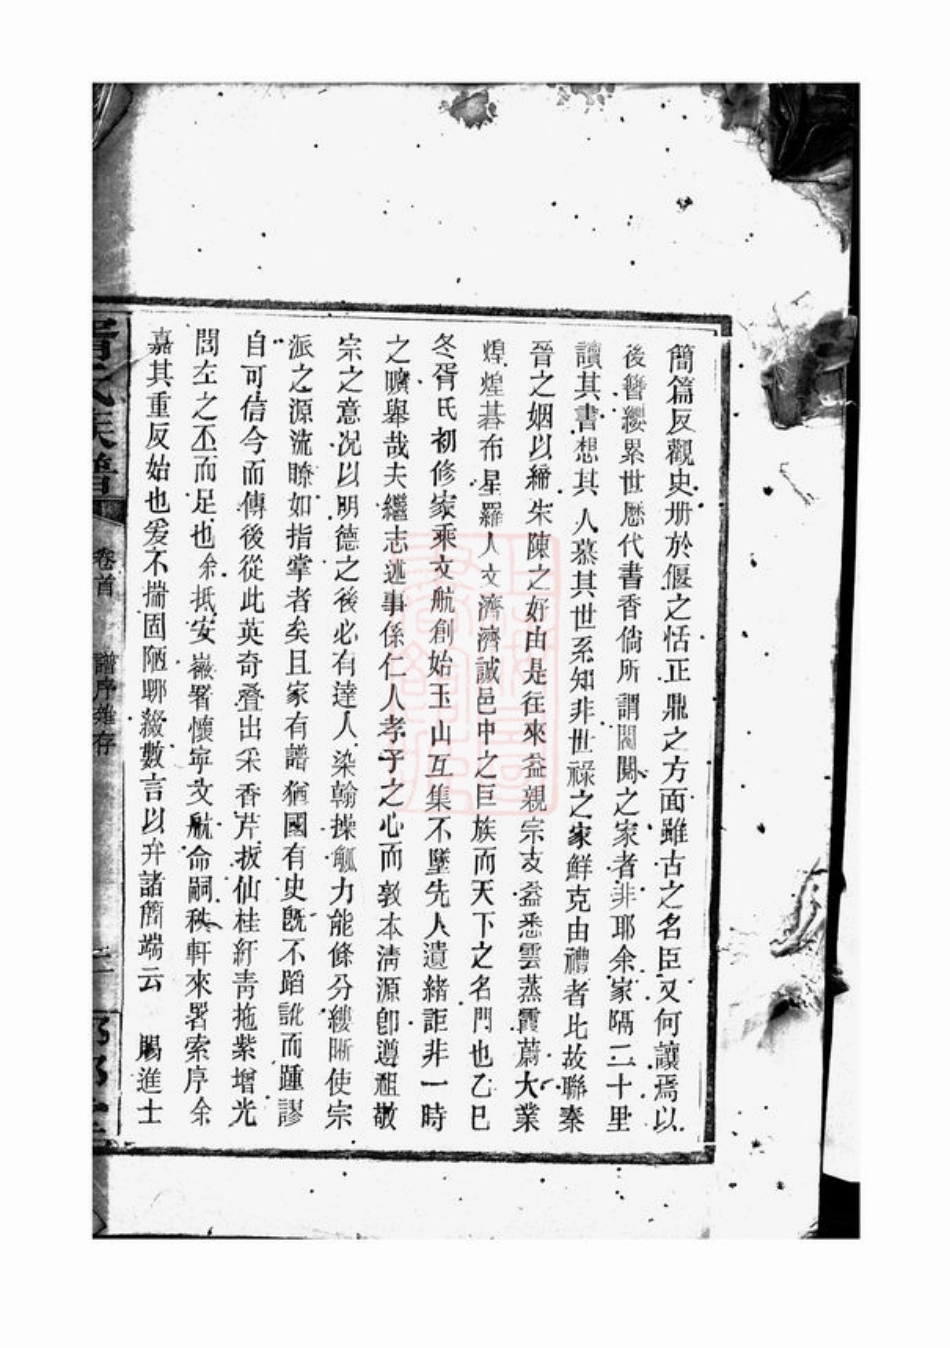 簡篇反觀史册於偃之恬正鼎之方面雖古之名臣又何讓焉以
後簪纓累世歷代書香倘所謂閥閱之家者非耶余家隔二十里
讀其書想其人慕其世系知非世祿之家鮮克由禮者比故聯秦
晉之姻以締朱陳之好由是往來益親宗支益悉雲蒸霞蔚大業
煌煌碁布星羅人文濟濟誠邑中之巨族而天下之名門也乙巳
冬胥氏初修家乘文航創始玉山互集不墜先人遺緒詎非一時
之曠舉哉夫繼志述事係仁人孝子之心而敦本清源卽遵祖敬
宗之意况以明德之後必有達人染翰操觚力能條分縷晰使宗
派之源流瞭如指掌者矣且家有譜猶國有史旣不蹈訛而踵謬
自可信今而傳後從此英奇叠出采香芹扳仙桂紆青拖紫增光
閭左之丕而足也余抵安徽署懷寧文航命嗣秩軒來署索序余
嘉其重反始也爰不揣固陋聊綴數言以弁諸簡端云 賜進士
胥氏族譜 卷首 譜序雜存